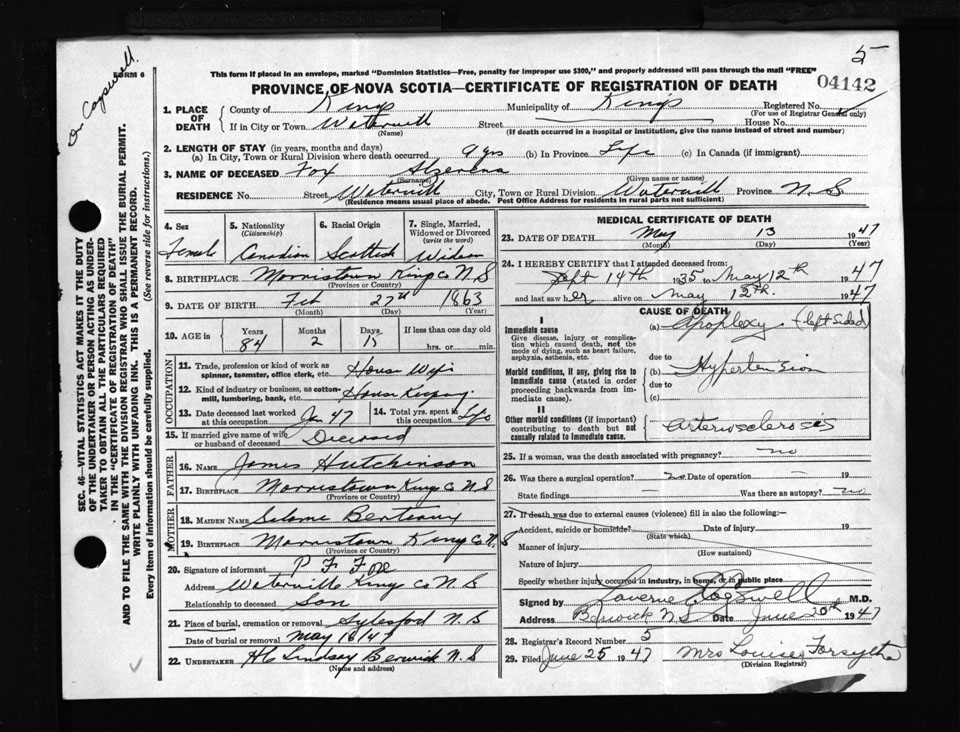 Dr Cogswell.
5
FORM 6
This form if placed in an envelope, marked "Dominion Statistics—Free, penalty for improper use $300," and properly addressed will pass through the mail "FREE"
04142
PROVINCE OF NOVA SCOTIA—CERTIFICATE OF REGISTRATION OF DEATH
SEC. 46—VITAL STATISTICS ACT MAKES IT THE DUTY
OF THE UNDERTAKER OR PERSON ACTING AS UNDER-
TAKER TO OBTAIN ALL THE PARTICULARS REQUIRED
IN THE "CERTIFICATE OF REGISTRATION OF DEATH"
AND TO FILE THE SAME WITH THE DIVISION REGISTRAR WHO SHALL ISSUE THE BURIAL PERMIT.
WRITE PLAINLY WITH UNFADING INK. THIS IS A PERMANENT RECORD.
Every item of information should be carefully supplied. (See reverse side for instructions.)
1. PLACE OF DEATH County of Kings Municipality of Kings Registered No.
(For use of Registrar General only)
If in City or Town Waterville Street House No.
(Name) (If death occurred in a hospital or institution, give the name instead of street and number)
2. LENGTH OF STAY (in years, months and days)
(a) In City, Town or Rural Division where death occurred 9 yrs (b) In Province Life (c) In Canada (if immigrant)
3. NAME OF DECEASED Fox
(Surname) (Given name or names)
RESIDENCE No. Street Waterville City, Town or Rural Division Waterville Province N.S
(Residence means usual place of abode. Post Office Address for residents in rural parts not sufficient)
4. Sex 5. Nationality (Citizenship) 6. Racial Origin 7. Single, Married, Widowed or Divorced (write the word)
Female Canadian Scottish Widow
8. BIRTHPLACE Morristown King Co N.S
(Province or Country)
9. DATE OF BIRTH Feb 27th 1863
(Month) (Day) (Year)
10. AGE in Years Months Days If less than one day old
84 2 15 hrs. or min.
OCCUPATION
11. Trade, profession or kind of work as
spinner, teamster, office clerk, etc. House Wife
12. Kind of industry or business, as cotton-
mill, lumbering, bank, etc. House Keeping
13. Date deceased last worked
at this occupation Jan 47 14. Total yrs. spent in
this occupation Life
15. If married give name of wife
or husband of deceased Deceased
FATHER
16. NAME James Hutchinson
17. BIRTHPLACE Morristown King Co N.S
(Province or Country)
MOTHER
18. MAIDEN NAME Salome Berteaux
19. BIRTHPLACE Morristown King Co N.S
(Province or Country)
20. Signature of informant P F Fox
Address Waterville Kings Co N.S
Relationship to deceased Son
21. Place of burial, cremation or removal Aylesford N.S
Date of burial or removal May 16/47
22. UNDERTAKER HC Lindsay Berwick N.S
(Name and address)
MEDICAL CERTIFICATE OF DEATH
23. DATE OF DEATH May 13 1947
(Month) (Day) (Year)
24. I HEREBY CERTIFY that I attended deceased from:
Sept 14th 1935 to May 12th 1947
and last saw her alive on May 12th. 1947
CAUSE OF DEATH
I
Immediate cause
Give disease, injury or complica-
tion which caused death, not the
mode of dying, such as heart failure,
asphyxia, asthenia, etc.
(a) Apoplexy (left sided)
due to
Morbid conditions, if any, giving rise to
immediate cause (stated in order
proceeding backwards from im-
mediate cause).
(b) Hypertension
due to
(c)
II
Other morbid conditions (if important)
contributing to death but not
causally related to immediate cause.
arteriosclerosis
25. If a woman, was the death associated with pregnancy? no
26. Was there a surgical operation? no Date of operation — 19 —
State findings — Was there an autopsy? no
27. If death was due to external causes (violence) fill in also the following:
Accident, suicide or homicide? Date of injury 19
(State which)
Manner of injury
(How sustained)
Nature of injury
Specify whether injury occurred in industry, in home, or in public place
Signed by Laverne Cogswell M.D.
Address Berwick N.S Date June 20th 1947
28. Registrar's Record Number 5
29. Filed June 25 1947 Mrs Louise Forsythe
(Division Registrar)